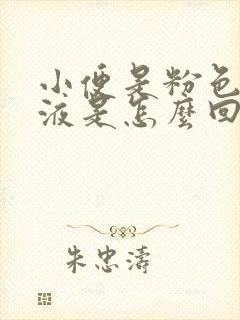 小便是粉色
液是怎麼回
朱忠濤